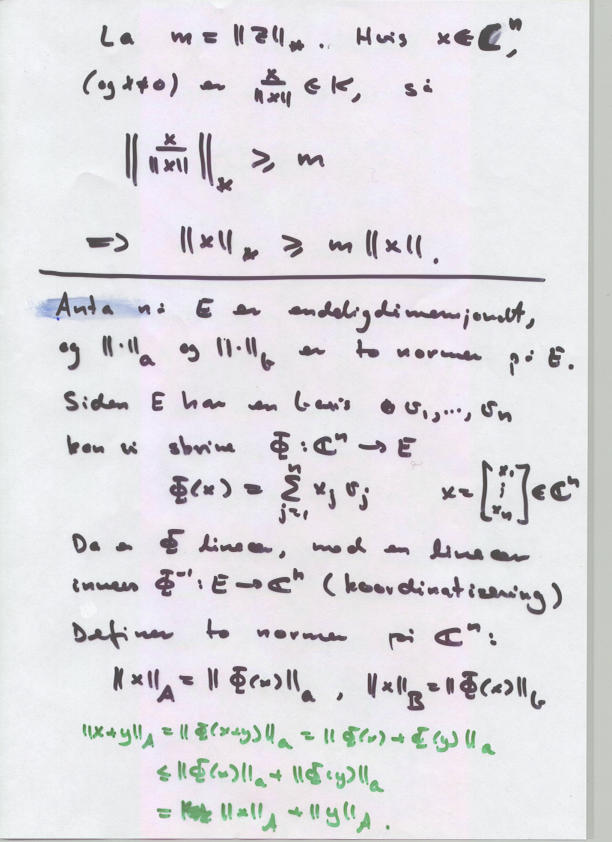 La m = ||z||_*. Hvis x ∈ ℂⁿ,
(og x≠0) er x/||x|| ∈ K, så
|| x/||x|| ||_* ≥ m
=> ||x||_* ≥ m ||x||.
Anta nå E er endeligdimensjonalt,
og ||·||_a og ||·||_b er to normer på E.
Siden E har en basis v₁,..., vₙ
kan vi skrive Φ : ℂⁿ → E
Φ(x) = Σ_{j=1}^n x_j v_j x = [x₁ ⋮ xₙ] ∈ ℂⁿ
Da er Φ lineær, med en lineær
invers Φ⁻¹ : E → ℂⁿ (koordinatisering)
Definer to normer på ℂⁿ:
||x||_A = ||Φ(x)||_a , ||x||_B = ||Φ(x)||_b
||x+y||_A = ||Φ(x+y)||_a = ||Φ(x) + Φ(y)||_a
≤ ||Φ(x)||_a + ||Φ(y)||_a
= ||x||_A + ||y||_A.